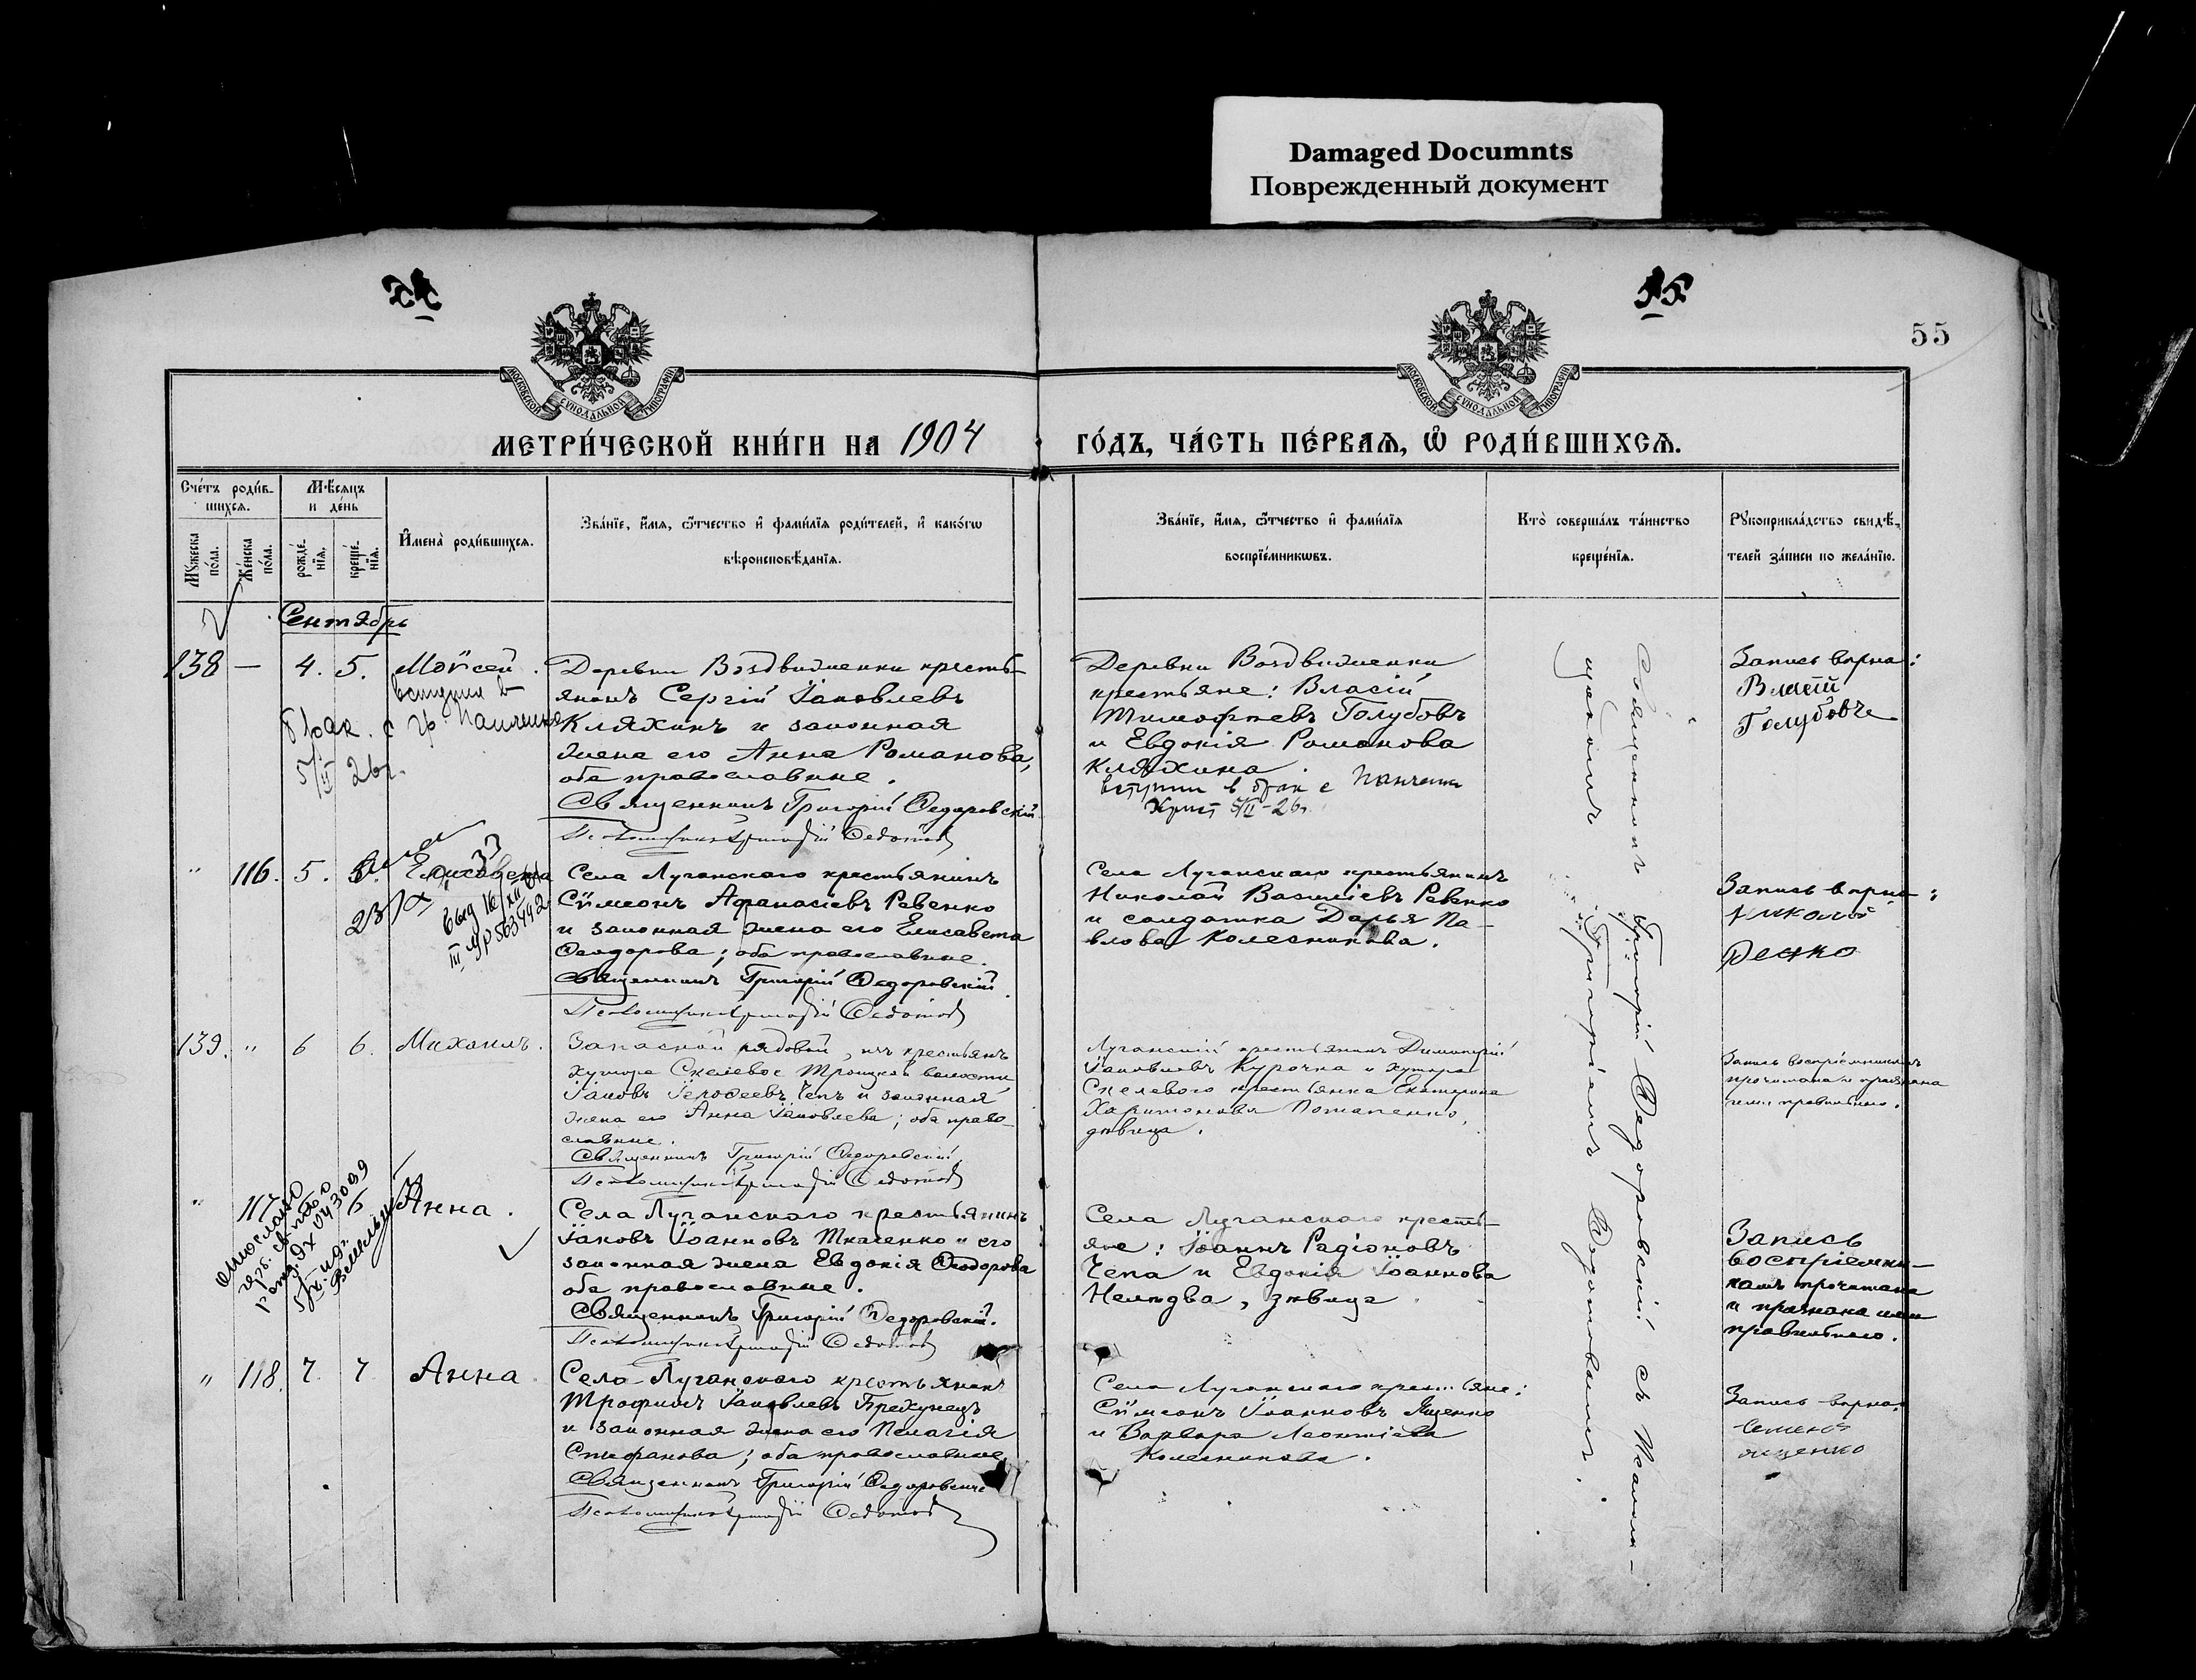 Damaged Documnts
Поврежденный документ
55
55
МОСКОВСКОЙ СѴНОДАЛЬНОЙ ТИПОГРАФІИ
МОСКОВСКОЙ СѴНОДАЛЬНОЙ ТИПОГРАФІИ
МЕТРИ́ЧЕСКОЙ КНИ́ГИ НА 1904
ГО́ДЪ, ЧА́СТЬ ПЕ́РВАѦ, Ѽ РОДИ́ВШИХСѦ.
Сче́тъ роди́в-
шихсѧ.
Мꙋ́жеска
по́ла.
Же́нска
по́ла.
Мѣ́сѧцъ
и де́нь
рожде́-
нїѧ.
креще́-
нїѧ.
И҆мена̀ роди́вшихсѧ.
Зва́нїе, и҆́мѧ, ѻ҆́тчество и҆ фами́лїѧ роди́телей, и҆ како́гѡ
вѣроисповѣ́данїѧ.
Зва́нїе, и҆́мѧ, ѻ҆́тчество и҆ фами́лїѧ
воспрїе́мникѡвъ.
Кто̀ соверша́лъ та́инство
креще́нїѧ.
Рꙋкоприкла́дство свидѣ́-
телей за́писи по жела́нїю.
Сентябрь
138 — 4. 5. Моѵсей.
вступил в
брак. с гр. Панченко
5/II 26г.
Деревни Воздвиженки кресть-
янинъ Сергій Іаковлевъ
Кляхинъ и законная
жена его Анна Романова,
оба православные.
Священникъ Григорій Ѳедоровскій
Псаломщикъ Григорій Ѳедотовъ
Деревни Воздвиженки
крестьяне: Власій
Тимофеевъ Голубовъ
и Евдокія Романова
Кляхина.
вступил в брак с Панченко
Христ 5/II-26г.
Запись вѣрна:
Власій
Голубовъ
" 116. 5. 5. Елисавета
Села Луганского крестьянинъ
Сѵмеонъ Аѳанасіевъ Ревенко
и законная жена его Елисавета
Ѳеодорова; оба православные.
Священникъ Григорій Ѳедоровскій.
Псаломщикъ Григорій Ѳедотовъ
Села Луганскаго крестьянинъ
Николай Василіевъ Ревенко
и солдатка Дарья Па-
влова Колесникова.
Запись вѣрна:
139. " 6 6. Михаилъ.
Запасной рядовой, изъ крестьянъ
хутора Скелевое Троицкой волости
Іаковъ Іероѳеевъ Чепъ и законная
жена его Анна Іаковлева; оба право-
славные.
Священникъ Григорій Ѳедоровскій.
Псаломщикъ Григорій Ѳедотовъ
Луганскій крестьянинъ Димитрій
Іаковлевъ Курочка и хутора
Скелевого крестьянка Екатерина
Харитонова Потапенко,
дѣвица.
Запись воспріемникамъ
прочитана и признана
ими правильною.
" 117 6 Анна.
Села Луганского крестьянинъ
Іаковъ Іоанновъ Ткаченко и его
законная жена Евдокія Ѳеодорова
оба православные.
Священникъ Григорій Ѳедоровскій.
Псаломщикъ Григорій Ѳедотовъ
Села Луганскаго кресть-
яне: Іоаннъ Радіоновъ
Чепа и Евдокія Іоаннова
Нелѣдва, дѣвица
Запись
воспріемни-
камъ прочитана
и признана ими
правильною.
" 118. 7. 7 Анна.
Села Луганского крестьянинъ
Трофимъ Іаковлевъ Брехунецъ
и законная жена его Пелагія
Стефанова; оба православные.
Священникъ Григорій Ѳедоровскій
Псаломщикъ Григорій Ѳедотовъ
Села Луганскаго крестьяне:
Сѵмеонъ Іоанновъ Ященко
и Варвара Леонтіева
Колесникова.
Запись вѣрна:
Семенъ
Ященко
Священникъ Григорій Ѳедоровскій съ Псалом-
щикомъ Григоріемъ Ѳедотовымъ.